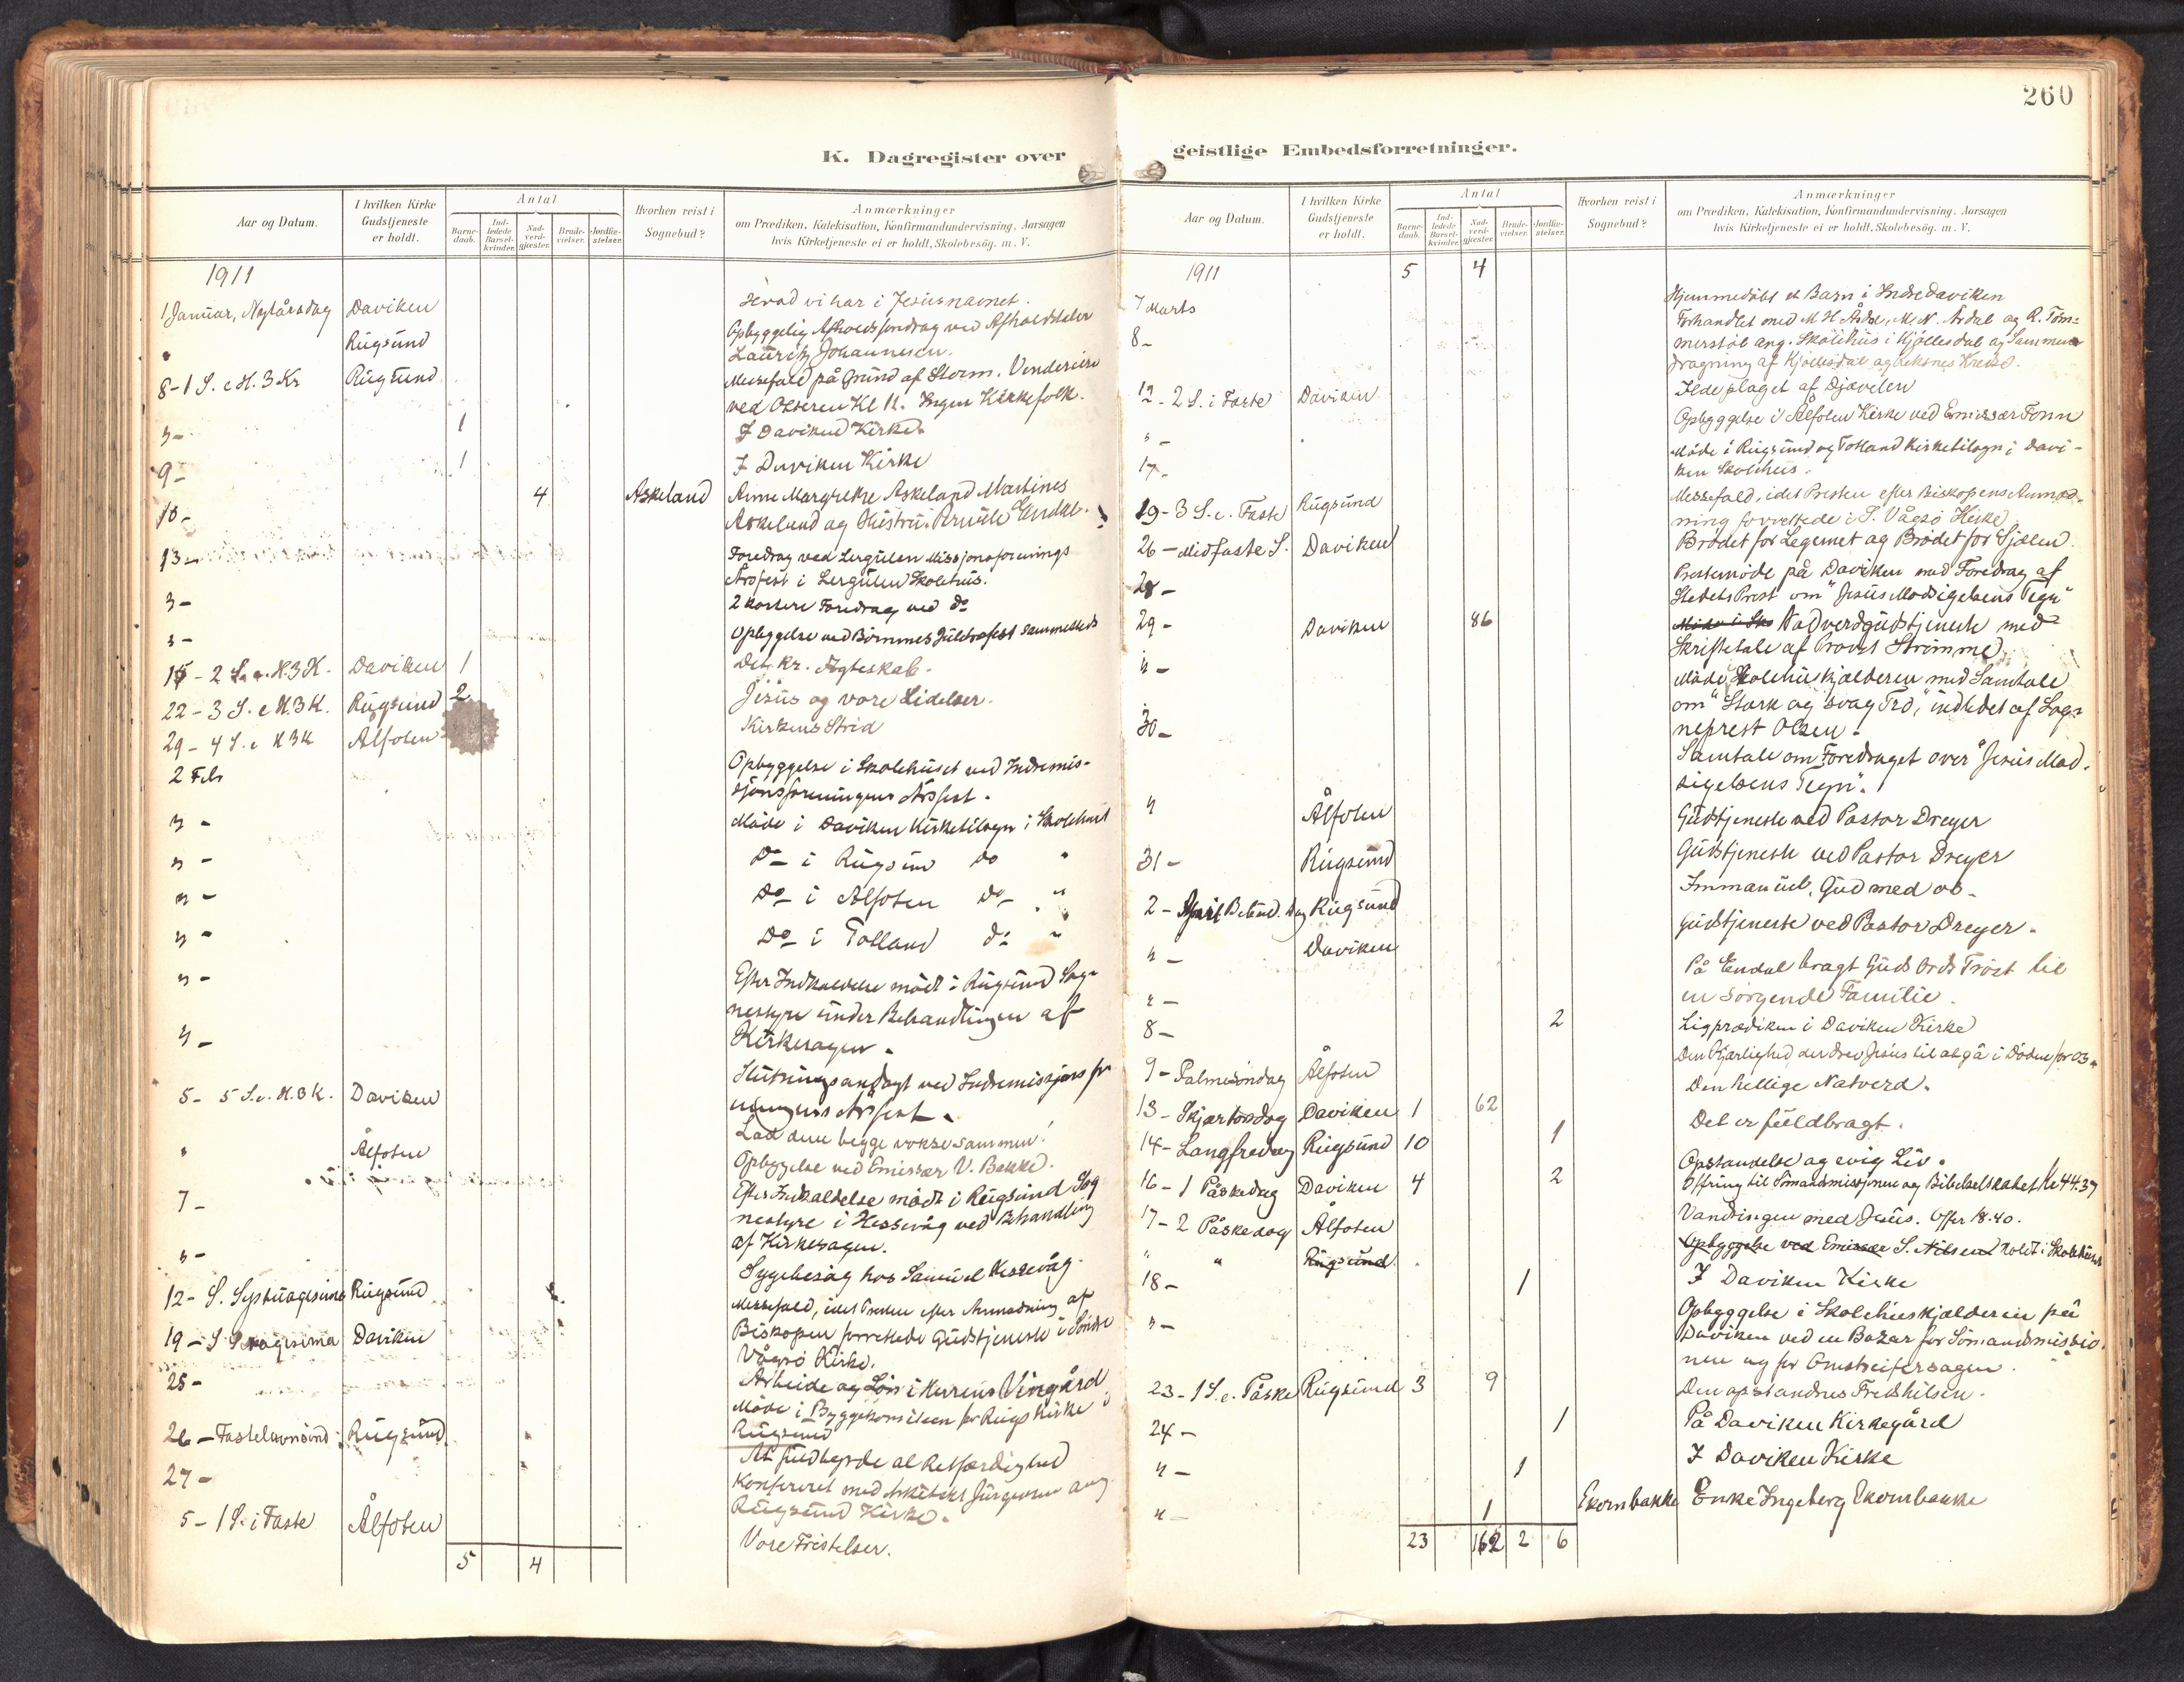 260
K. Dagregister over
Aar og Datum.
I hvilken Kirke Gudstjeneste er holdt.
Antal
Barne-daab.
Ind-ledede Barsel-kvinder.
Nad-verd-gjester.
Brude-vielser.
Jordfæ-stelser.
Hvorhen reist i Sognebud?
Anmærkninger
om Prædiken, Katekisation, Konfirmandundervisning, Aarsagen
hvis Kirketjeneste ei er holdt, Skolebesøg. m. V.
1911
1 Januar, Nytårsdag Daviken Hvad vi har i Jesusnavnet.
" Rugsund Opbyggelig Afholdsforedrag ved Afholdstaler
Lauritz Johannesen.
8-1 S. e H. 3 Kr Rugsund Messefald på Grund af Storm. Vendereise
ved Olteren Kl 11. Ingen Kirkefolk.
" - 1 I Daviken Kirke.
9- 1 I Daviken Kirke
10- 4 Askeland Anne Margrethe Askeland Martines
Askeland og Hustru.
13- Foredrag ved Lergulen Missjonsforenings
Årsfest i Lergulen Skolehus.
" - 2 kortere Foredrag ved do
" - Opbyggelse ved Børnenes Juletræfest sammesteds
15 - 2 S. e. H.3K. Daviken 1 Det kr. Ægteskab.
22 - 3 S. e H.3K. Rugsund 2 Jesus og vore Lidelser.
29 - 4 S. e H 3K Ålfoten Kirkens Strid
2 Feb Opbyggelse i Skolehuset ved Indremis-
sjonsforeningens Årsfest.
" - Møde i Daviken Kirketilsyn i Skolehuset
" - Do i Rugsund do "
" - Do i Ålfoten Do "
" - Do i Totland do "
" - Efter Indkaldelse mødt i Rugsund Sog-
nestyre under Behandlingen af
Kirkesagen.
" - Slutningsandagt ved Indremissjonsfor
eningens Årsfest.
5 - 5 S. e. H.3K. Daviken Lad dem begge vokse sammen!
" Ålfoten Opbyggelse ved Emissær V. Bakke.
7 - Efter Indkaldelse mødt i Rugsund Sog
nestyre i Hessevåg ved Behandling
af Kirkesagen.
" - Sygebesøg hos Samuel Hessevåg.
12 - S. Rugsund Messefald, idet Presten efter Anmodning af
Biskopen forrettede Gudstjeneste i Søndre
Vågsø Kirke.
19 - S Daviken Arbeide og Løn i Herrens Vingård
25 - Møde i Byggekomiteen for Rugs Kirke i
Rugsund
26 - Fastelavnsønd. Rugsund At fuldbyrde al Retfærdighed
27 - Konfereret med Arkitekt Jürgensen ang
Rugsund Kirke.
5 - 1 S. i Faste Ålfoten Vore Fristelser.
5 4
geistlige Embedsforretninger.
Aar og Datum.
I hvilken Kirke Gudstjeneste er holdt.
Antal
Barne-daab.
Ind-ledede Barsel-kvinder.
Nad-verd-gjester.
Brude-vielser.
Jordfæ-stelser.
Hvorhen reist i Sognebud?
Anmærkninger
om Prædiken, Katekisation, Konfirmandundervisning, Aarsagen
hvis Kirketjeneste ei er holdt, Skolebesøg. m. V.
1911 5 4
7 Marts Hjemmedøbt et Barn i Indre Daviken
8 - Forhandlet med M H Årdal, M. N. Årdal og R. Tøm-
merstøl ang. Skolehus i Hjøllesdal og Sammen
dragning af Hjøllesdal og Kredse.
12 - 2 S. i Faste Daviken Ilde plaget af Djævelen
" - Opbyggelse i Ålfoten Kirke ved Emissær Tonn
17 - Møde i Rugsund og Totland Kirketilsyn i Davi-
ken Skolehus.
19 - 3 S. i. Faste Rugsund Messefald, idet Presten efter Biskopens Anmod-
ning forrettede i S. Vågsø Kirke
26 - Midfaste S. Daviken Brødet for Legemet og Brødet for Sjælen.
28 - Prestemøde på Daviken med Foredrag af
Stedets Prest om "Jesus Modsigelsens Tegn"
29 - Daviken 86 Nadverdgudstjeneste med
Skriftetale af Provst Strømme
" - Møde Skolehuskjælderen med Samtale
om "Stærk og svag Tro," indledet af Sog-
neprest Olsen.
30 - Samtale om Foredraget over "Jesus Mod-
sigelsens Tegn".
" Ålfoten Gudstjeneste ved Pastor Dreyer
31 - Rugsund Gudstjeneste ved Pastor Dreyer
2 - April Rugsund Immanuel, Gud med os -
" - Daviken Gudstjeneste ved Pastor Dreyer.
" - På Endal bragt Guds Ords Trøst til
en sørgende Familie.
8 - 2 Ligprædiken i Daviken Kirke
9 - Palmesøndag Ålfoten Den Kjærlighed der drev Jesus til at gå i Døden for os.
13 - Skjærtorsdag Daviken 1 62 Den hellige Natverd.
14 - Langfredag Rugsund 10 1 Det er fuldbragt.
16 - 1 Påskedag Daviken 4 2 Opstandelse og evig Liv.
Offring til Sømandsmissjonen og Bibelselskabet Kr 44.37
17 - 2 Påskedag Ålfoten Vandringen med Jesus. Offer 18.40.
" " Rugsund Opbyggelse ved Emissær S. Nilsen holdt i Skolehuset
18 - 1 I Daviken Kirke
" - Opbyggelse i Skolehuskjælderen på
Daviken ved en Bazar for Sømandsmissio
nen og for Omstreifersagen.
23 - 1 S. e. Påske Rugsund 3 9 Den opstandnes Fredshilsen.
24 - 1 På Daviken Kirkegård
" - 1 I Daviken Kirke
" - 1 Ekornbakke Enke Ingeborg Ekornbakke
23 162 2 6